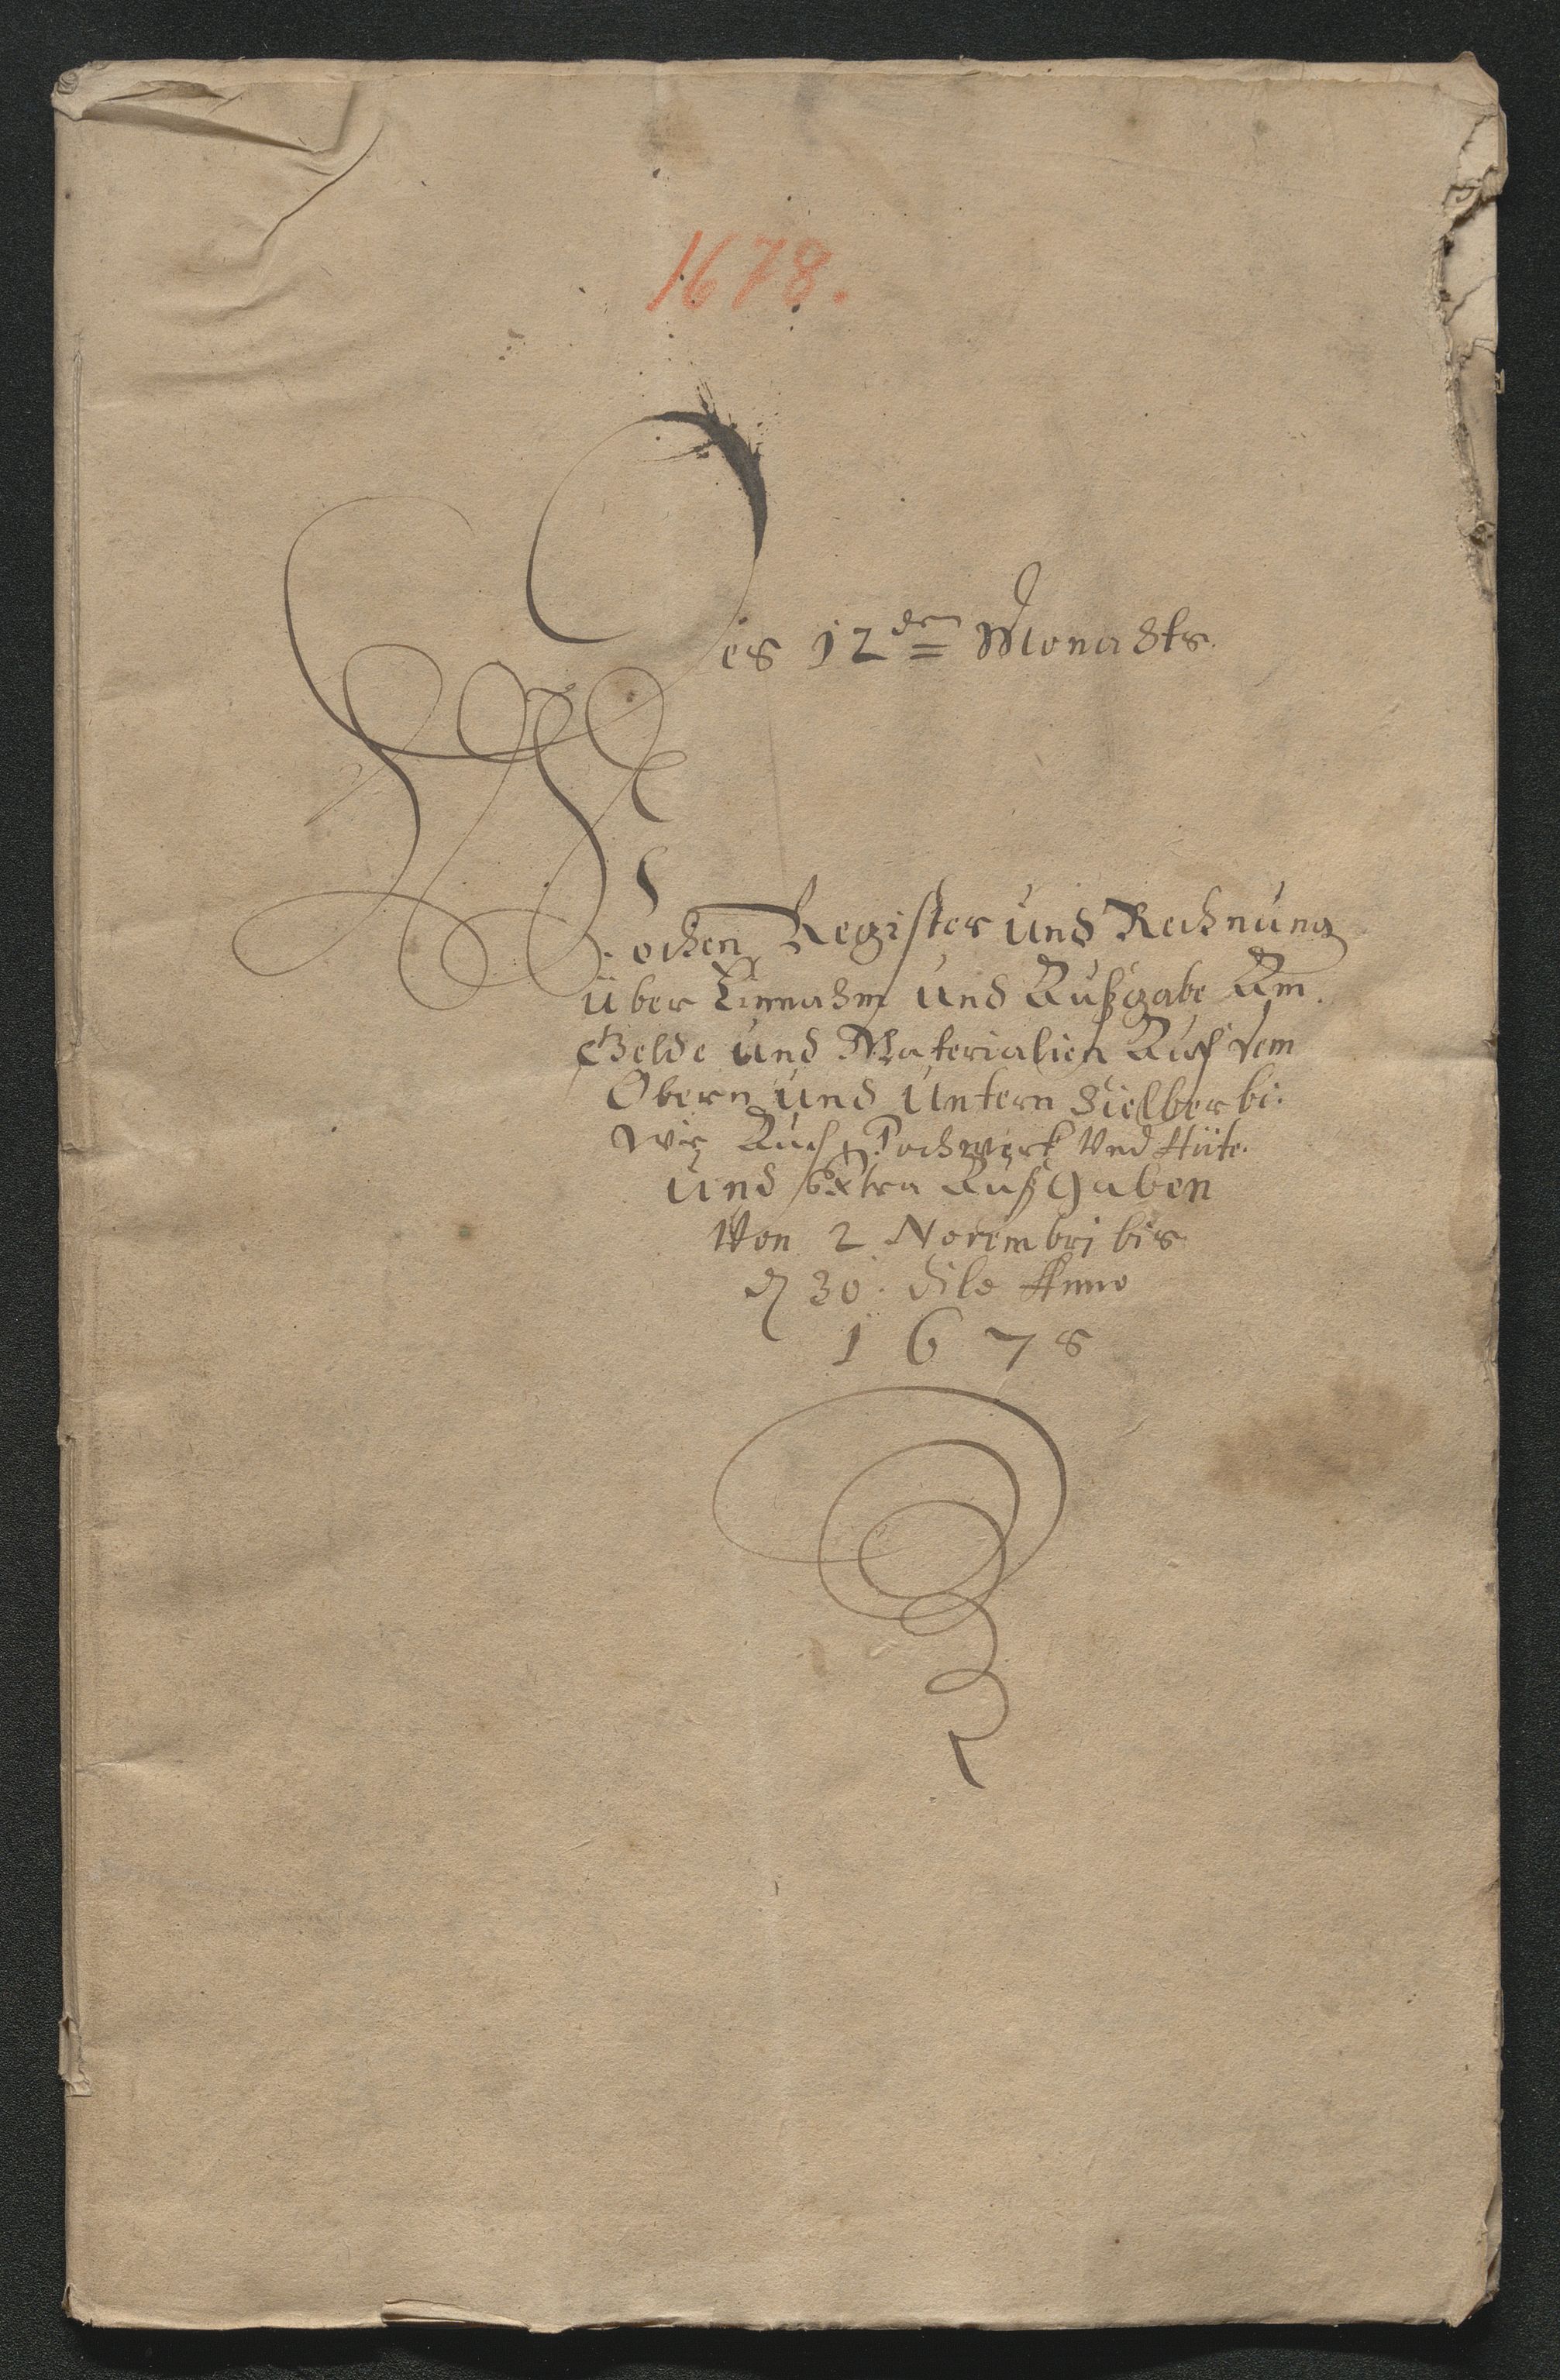 1678.
Des 12den Monadts.
Wochen Register und Rechnung
über Einnahm und Außgabe Am
Gelde und Materialien Auf dem
Obern und Untern Sielberbi.
wie Auch Pochwerk Und Hüte.
und Extra Außgaben
Von 2 Novembri bis
30. dito Anno
1678